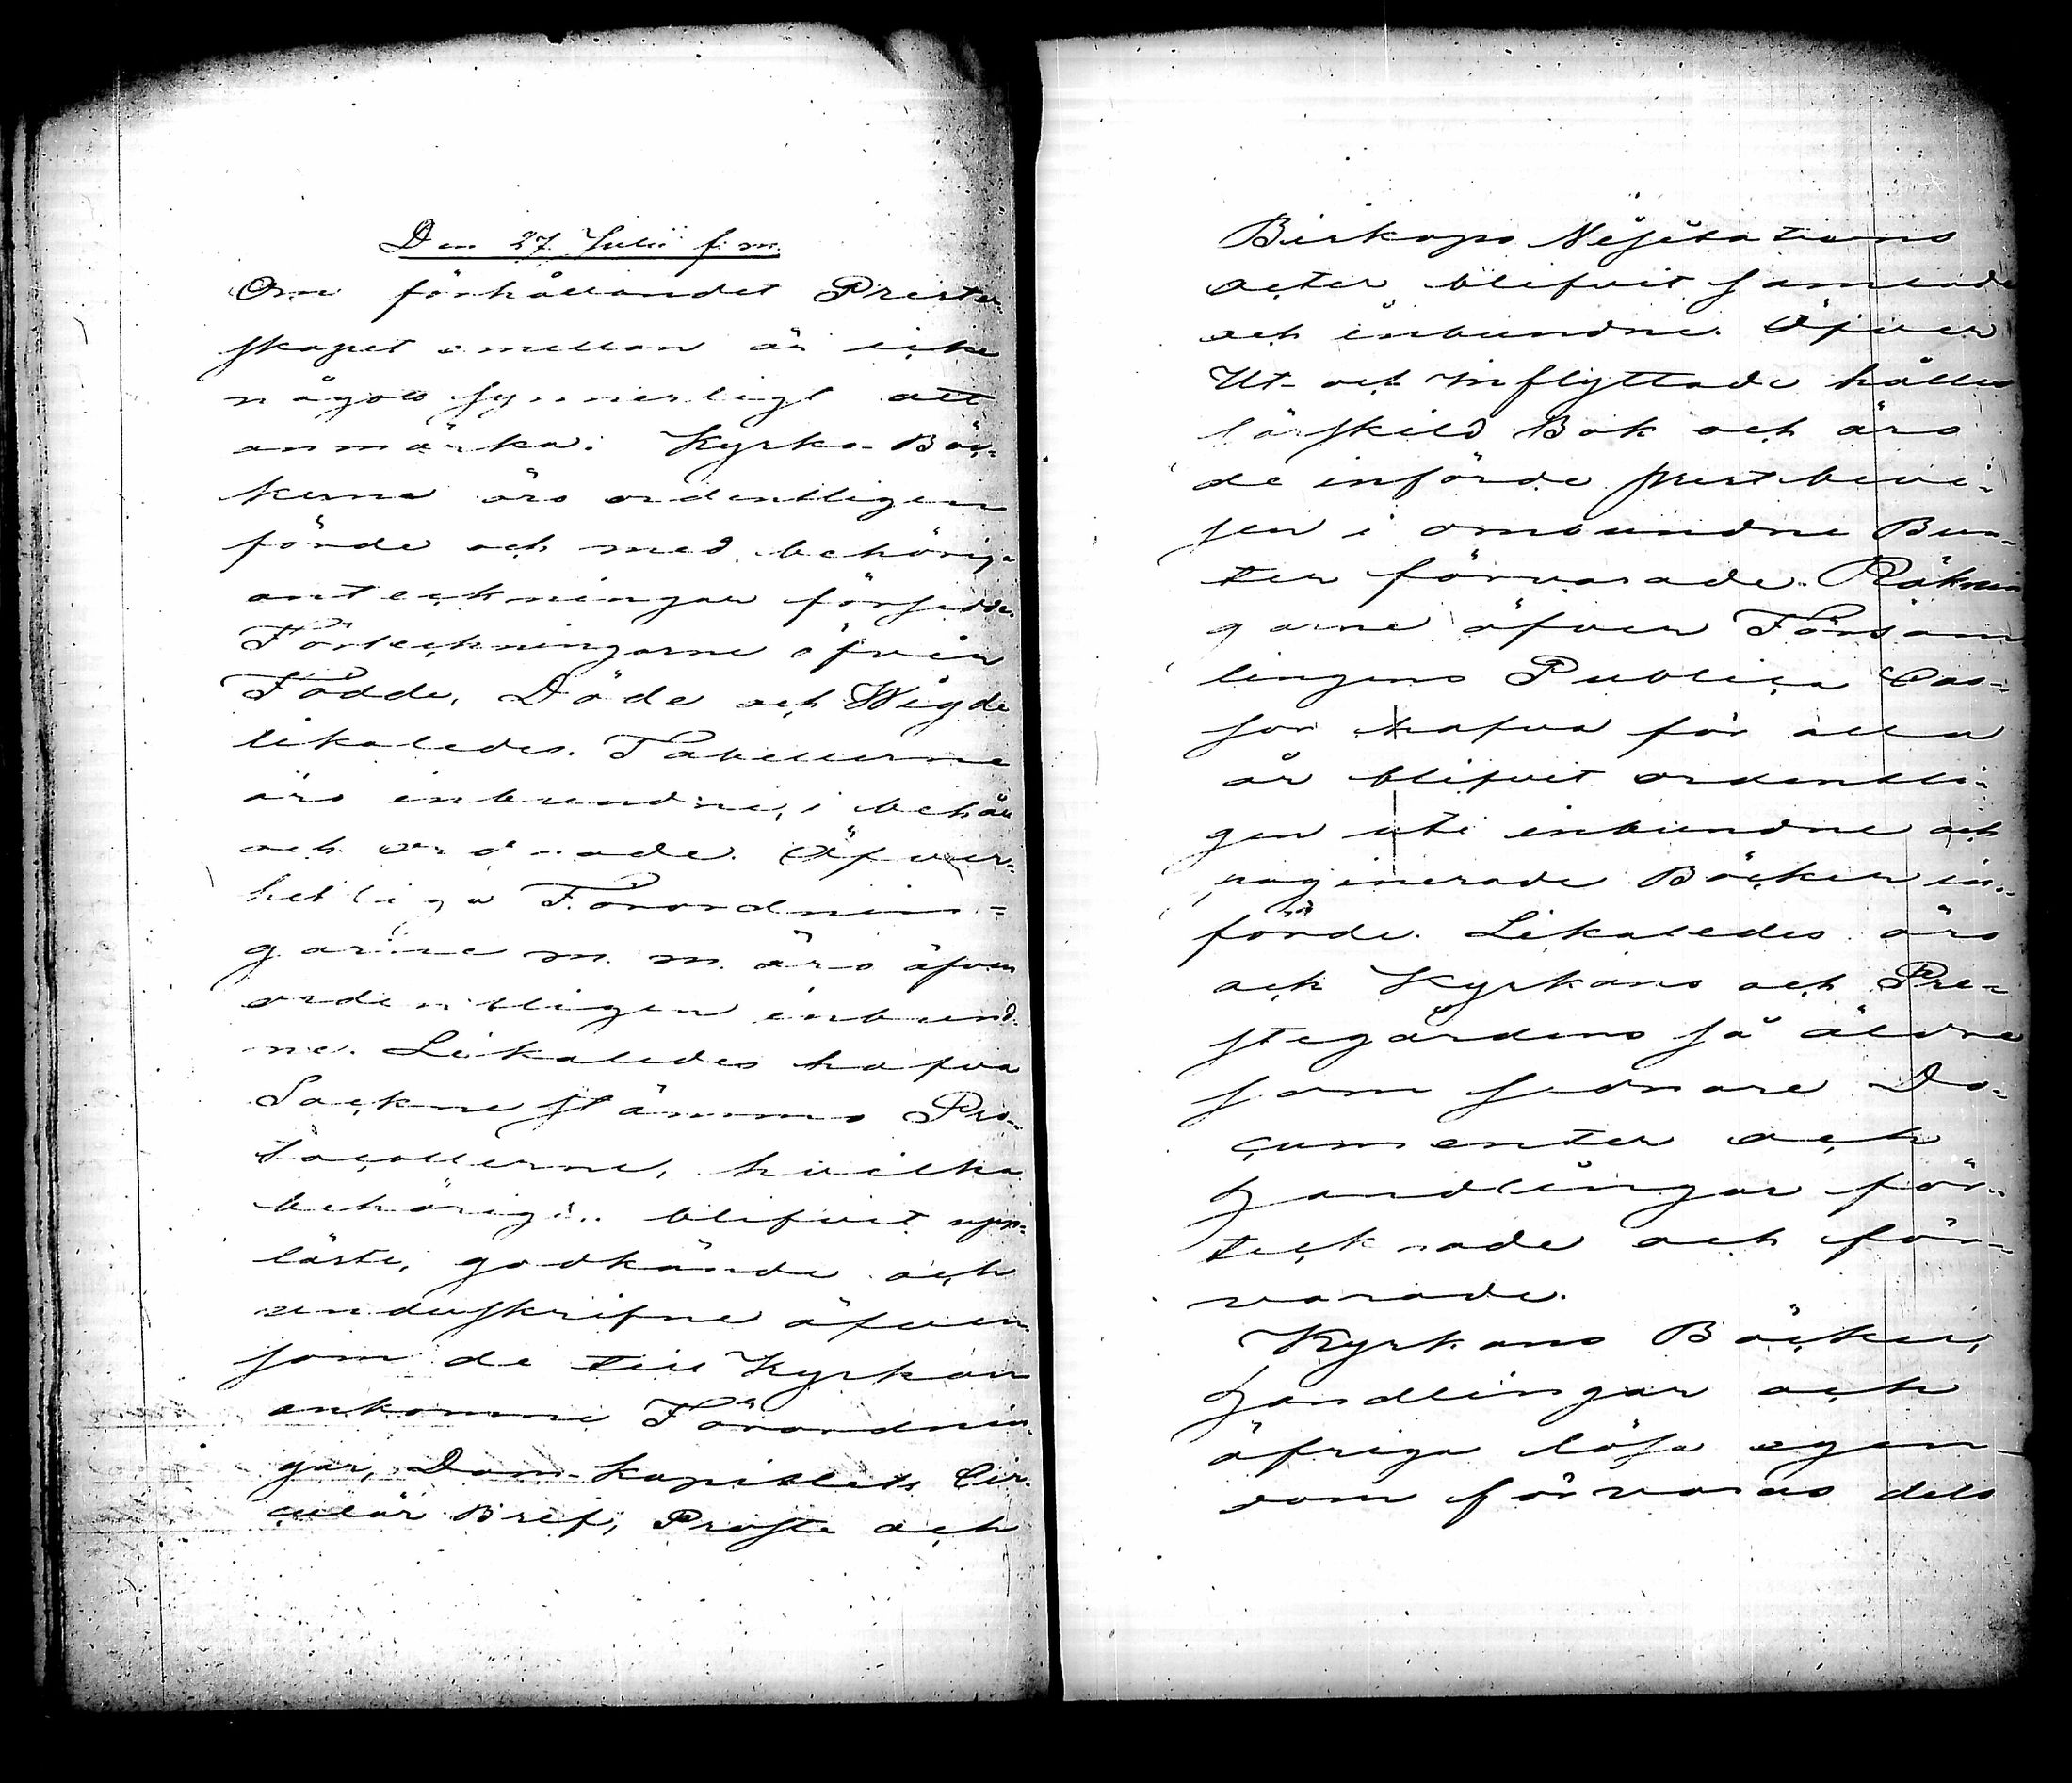 Den 27 Julii f. m.
Om förhållandet Prester-
skapet emellan är icke
något synnerligt att
anmärka. Kyrko-Böc-
kerna äro ordentligen
förde och med behöriga
anteckningar försedde.
Förteckningarne öfver
Födde, Döde och Wigde
likaledes. Tabellerne
äro inbundne, i behåll
och ordnade. Öfver-
hetliga Förordnin-
garne m. m. äro äfven
ordentligen inbund-
ne. Likaledes hafva
Sockne stämmo Pro-
tocollerne, hvilka
behörigen blifvit upp-
läste, godkände och
underskrifne äfven
som de till Kyrkan
ankomne Förordnin-
gar, Dom-Kapitlets Cir-
culär Bref, Proste och
Biskops Visitations
acter blifvit samlade
och inbundne. Öfver
Ut- och Inflyttade hålles
särskild Bok och äro
de införde prestbevi-
sen i ombundne Bun-
ter förvarade. Räknin
garne öfver Försam
lingens Publica Cas-
sor hafva för alla
år blifvit ordentli-
gen uti inbundne och
paginerade Böcker in-
förde. Likaledes äro
ock Kyrkans och Pre-
stegårdens så äldre
som sednare Do-
cumenter och
Handlingar för-
tecknade och för-
varade.
Kyrkans Böcker,
Handlingar och
öfriga lösa egen-
dom förvaras dels